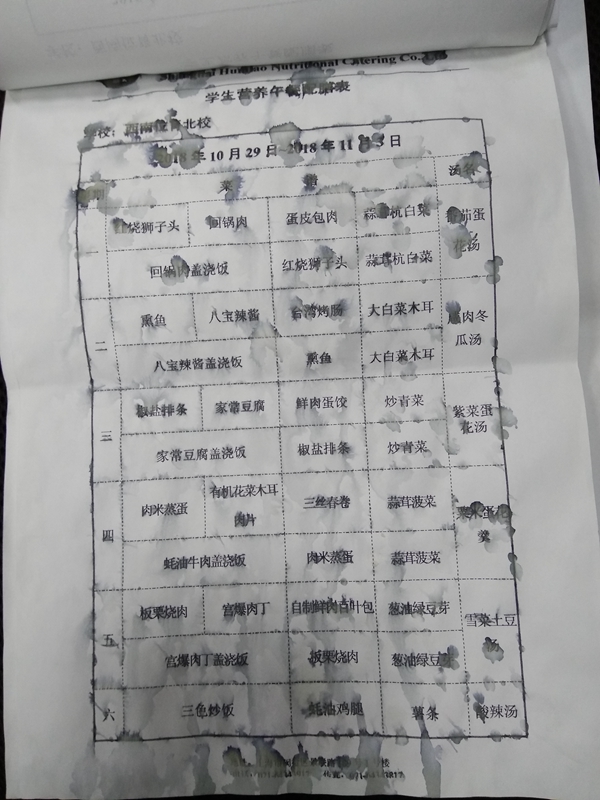 Nutritional Catering Co.
学生营养午餐配膳表
学校： 北校
2018 年 10 月 29 日-2018 年 11 月 5 日
菜 汤名
一
红烧狮子头 回锅肉 蛋皮包肉 蒜茸杭白菜 番茄蛋花汤
回锅肉盖浇饭 红烧狮子头 蒜茸杭白菜
二
熏鱼 八宝辣酱 台湾烤肠 大白菜木耳 肉冬瓜汤
八宝辣酱盖浇饭 熏鱼 大白菜木耳
三
椒盐排条 家常豆腐 鲜肉蛋饺 炒青菜 紫菜蛋花汤
家常豆腐盖浇饭 椒盐排条 炒青菜
四
肉米蒸蛋 有机花菜木耳肉片 三丝春卷 蒜茸菠菜 羹
蚝油牛肉盖浇饭 肉米蒸蛋 蒜茸菠菜
五
板栗烧肉 宫爆肉丁 自制鲜肉百叶包 葱油绿豆芽 雪菜土豆汤
宫爆肉丁盖浇饭 板栗烧肉 葱油绿豆芽
六
三色炒饭 蚝油鸡腿 薯条 酸辣汤